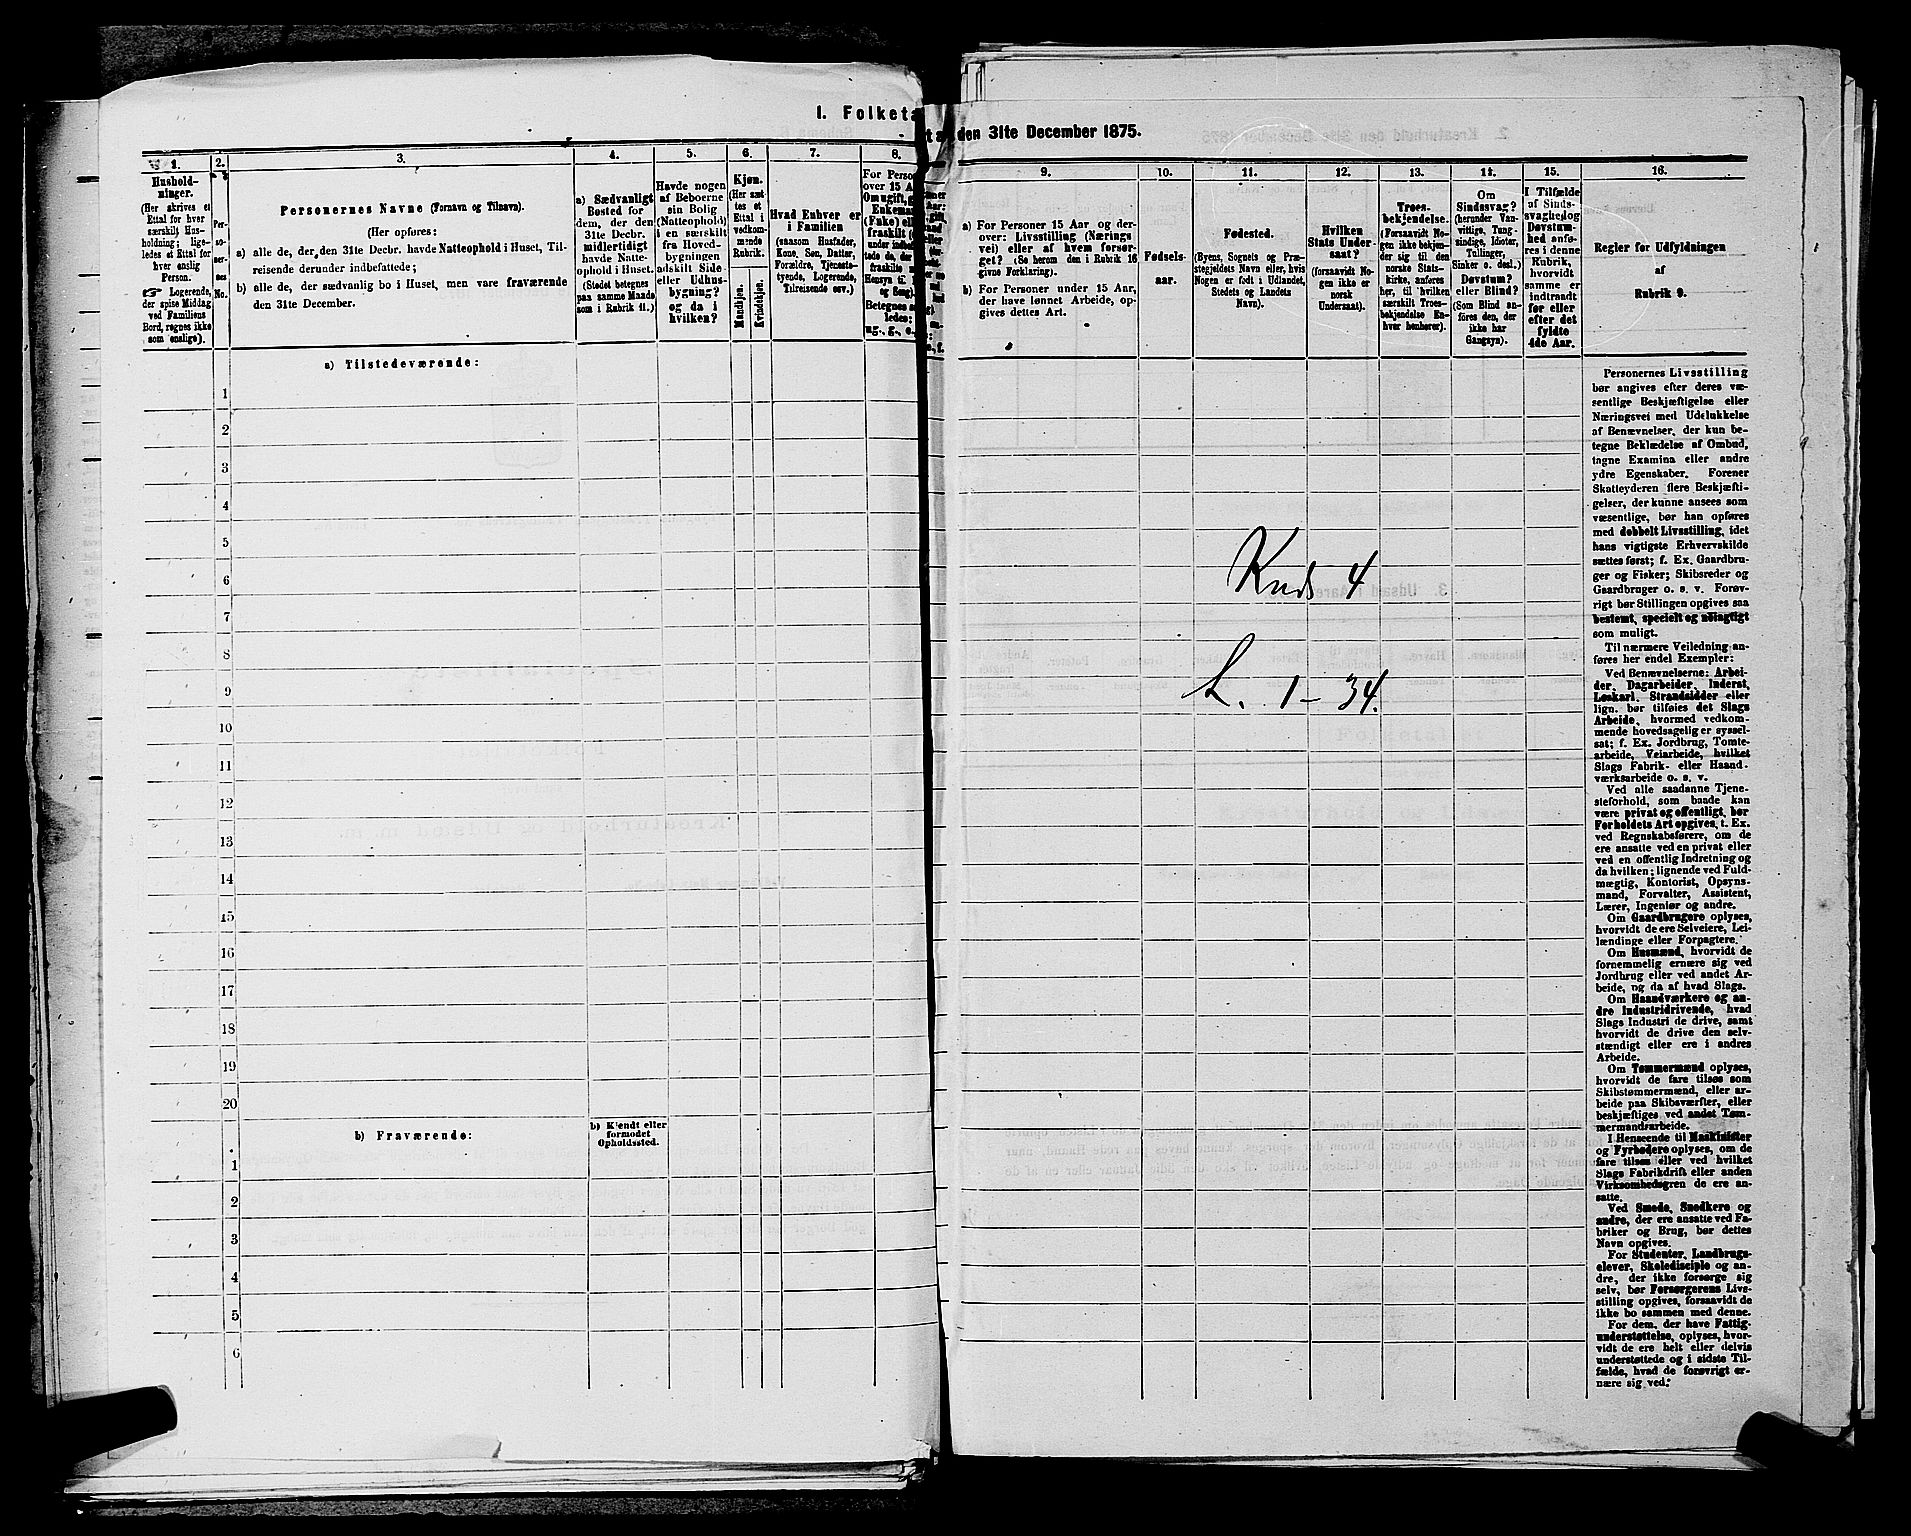 I. Folketal den 31te December 1875.
1.
2.
3.
4.
5.
6.
7.
8.
9.
10.
11.
12.
13.
14.
15.
16.
Husholdninger.
(Her skrives et Ettal for hver særskilt Husholdning; ligeledes et Ettal for hver enslig Person.
Logerende, der spise Middag ved Familiens Bord, regnes ikke som enslige).
Personernes No.
Personernes Navne (Fornavn og Tilnavn).
(Her opføres:
a) alle de, der den 31te Decbr. havde Natteophold i Huset, Tilreisende derunder indbefattede;
b) alle de, der sædvanlig bo i Huset, men vare fraværende den 31te December.
a) Sædvanligt Bosted for dem, der den 31te Decbr. midlertidigt havde Natteophold i Huset.
(Stedet betegnes paa samme Maade som i Rubrik 11.)
Havde nogen af Beboerne sin Bolig (Natteophold) i en særskilt fra Hovedbygningen adskilt Side- eller Udhusbygning? og da i hvilken?
Kjøn.
(Her sættes et Ettal i vedkommende Rubrik.
Mandkjøn.
Kvindekjøn.
Hvad Enhver er i Familien
(saasom Husfader, Kone, Søn, Datter, Forældre, Tjenestetyende, Logerende, Tilreisende osv.)
For Person
over 15 A
Om ugift, g
Enkema
(Enke) e
fraskilt (
a) For Personer 15 Aar og derover: Livsstilling (Næringsvei) eller af hvem forsørget? (Se herom den i Rubrik 16 givne Forklaring).
b) For Personer under 15 Aar, der have lønnet Arbeide, opgives dettes Art.
Fødselsaar.
Fødested.
(Byens, Sognets og Præstegjeldets Navn eller, hvis Nogen er født i Udlandet, Stedets og Landets Navn).
Hvilken Stats Undersaat?
(forsaavidt Nogen ikke er norsk Undersaat).
Troesbekjendelse.
(Forsaavidt Nogen ikke bekjender sig til den norske Statskirke, anføres her, til hvilken særskilt Troesbekjendelse Enhver henhører).
Om Sindssvag?
(herunder Vanvittige, Tungsindige, Idioter, Tullinger, Sinker o. desl.)
Døvstum? eller Blind?
(Som Blind anføres den, der ikke har Gangsyn).
I Tilfælde af Sindssvaghed og Døvstumhed anføres i denne Rubrik, hvorvidt samme er indtraadt før eller efter det fyldte 4de Aar.
Regler for Udfyldningen
af
Rubrik 9.
a) Tilstedeværende:
1
2
3
4
5
6
7
8
9
10
11
12
13
14
15
16
17
18
19
20
b) Fraværende:
b) Kjendt eller formodet Opholdssted.
1
2
3
4
5
6
Kreds 4
L. 1 - 34.
Personernes Livsstilling
bør angives efter deres væ-
sentlige Beskjæftigelse eller
Næringsvei med Udelukkelse
af Benævnelser, der kun be-
tegne Beklædelse af Ombud,
tagne Examina eller andre
ydre Egenskaber. Forener
Skatteyderen flere Beskjæfti-
gelser, der kunne ansees som
væsentlige, bør han opføres
med dobbelt Livsstilling, idet
hans vigtigste Erhvervskilde
sættes først; f. Ex. Gaardbru-
ger og Fisker; Skibsreder og
Gaardbruger o. s. v. Forøv-
rigt bør Stillingen opgives saa
bestemt, specielt og nøiagtigt
som muligt.
Til nærmere Veiledning an-
føres her endel Exempler:
Ved Benævnelserne: Arbei-
der, Dagarbeider, Inderst,
Løskarl, Strandsidder eller
lign. bør tilføies det Slags
Arbeide, hvormed vedkom-
mende hovedsagelig er syssel-
sat; f. Ex. Jordbrug, Tomte-
arbeide, Veiarbeide, hvilket
Slags Fabrik- eller Haand-
værksarbeide o. s. v.
Ved alle saadanne Tjene-
steforhold, som baade kan
være privat og offentligt, bør
Forholdets Art opgives, t. Ex.
ved Regnskabsførere, om de
ere ansatte ved en privat eller
ved en offentlig Indretning og
da hvilken; lignende ved Fuld-
mægtig, Kontorist, Opsyns-
mand, Forvalter, Assistent,
Lærer, Ingeniør og andre.
Om Gaardbrugere oplyses,
hvorvidt de ere Selveiere, Lei-
lændinge eller Forpagtere.
Om Husmænd, hvorvidt de
fornemmelig ernære sig ved
Jordbrug eller ved andet Ar-
beide, og da af hvad Slags.
Om Haandværkere og an-
dre Industridrivende, hvad
Slags Industri de drive, samt
hvorvidt de drive den selv-
stændigt eller ere i andres
Arbeide.
Om Tømmermænd oplyses,
hvorvidt de fare tilsøs som
Skibstømmermænd, eller ar-
beide paa Skibsværfter, eller
beskjæftiges ved andet Tøm-
mermandsarbeide.
I Henseende til Maskinister
og Fyrbødere oplyses, om de
fare tilsøs eller ved hvilket
Slags Fabrikdrift eller anden
Virksomhedsgren de ere an-
satte.
Ved Smede, Snedkere og
andre, der ere ansatte ved Fa-
briker og Brug, bør dettes
Navn opgives.
For Studenter, Landbrugs-
elever, Skoledisciple og an-
dre, der ikke forsørge sig
selv, bør Forsørgerens Livs-
stilling opgives, forsaavidt de
ikke bo sammen med denne.
For dem, der have Fattig-
understøttelse, oplyses, hvor-
vidt de ere helt eller delvis
understøttede og i sidste Til-
fælde, hvad de forøvrigt er-
nære sig ved.